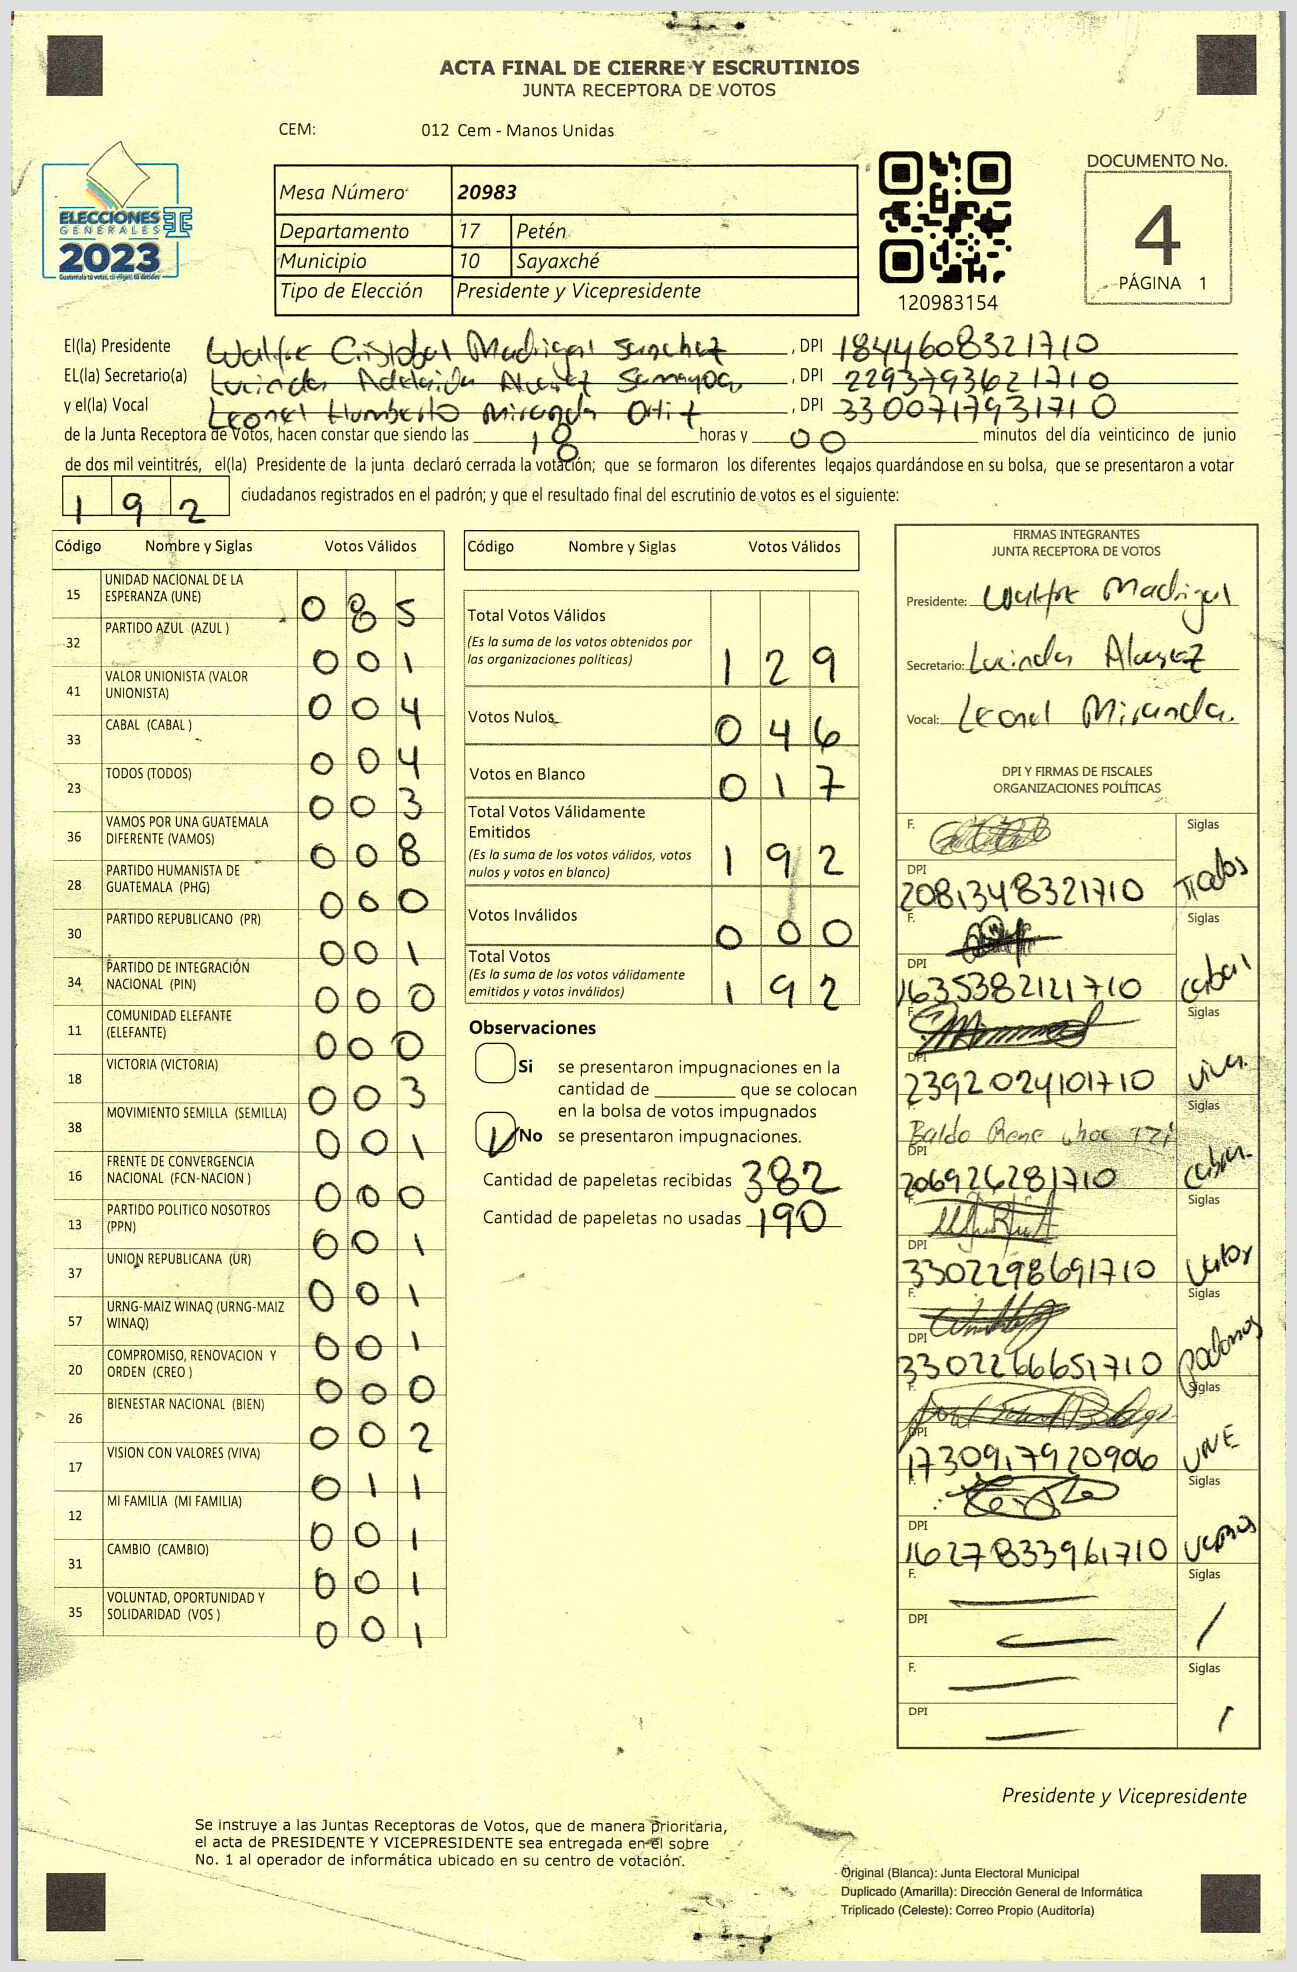 ACTA FINAL DE CIERRE Y ESCRUTINIOS
JUNTA RECEPTORA DE VOTOS
CEM: 012 Cem - Manos Unidas
ELECCIONES
GENERALES
2023
Guatemala tú votas, tú eliges, tú decides
Mesa Número 20983
Departamento 17 Petén
Municipio 10 Sayaxché
Tipo de Elección Presidente y Vicepresidente
120983154
DOCUMENTO No.
4
PÁGINA 1
El(la) Presidente Walfre Cristobal Madrigal Sanchez, DPI 1844608321710
EL(la) Secretario(a) Lucinda Adelaida Alvarez Samayoa, DPI 2293793621710
y el(la) Vocal Leonel Humberto Miranda Ortiz, DPI 3300717931710
de la Junta Receptora de Votos, hacen constar que siendo las 18 horas y 00 minutos del día veinticinco de junio
de dos mil veintitrés, el(la) Presidente de la junta declaró cerrada la votación; que se formaron los diferentes legajos guardándose en su bolsa, que se presentaron a votar
192 ciudadanos registrados en el padrón; y que el resultado final del escrutinio de votos es el siguiente:
Código Nombre y Siglas Votos Válidos
15 UNIDAD NACIONAL DE LA ESPERANZA (UNE) 085
32 PARTIDO AZUL (AZUL ) 001
41 VALOR UNIONISTA (VALOR UNIONISTA) 004
33 CABAL (CABAL ) 004
23 TODOS (TODOS) 003
36 VAMOS POR UNA GUATEMALA DIFERENTE (VAMOS) 008
28 PARTIDO HUMANISTA DE GUATEMALA (PHG) 000
30 PARTIDO REPUBLICANO (PR) 001
34 PARTIDO DE INTEGRACIÓN NACIONAL (PIN) 000
11 COMUNIDAD ELEFANTE (ELEFANTE) 000
18 VICTORIA (VICTORIA) 003
38 MOVIMIENTO SEMILLA (SEMILLA) 001
16 FRENTE DE CONVERGENCIA NACIONAL (FCN-NACION ) 000
13 PARTIDO POLITICO NOSOTROS (PPN) 001
37 UNION REPUBLICANA (UR) 001
57 URNG-MAIZ WINAQ (URNG-MAIZ WINAQ) 001
20 COMPROMISO, RENOVACION Y ORDEN (CREO ) 000
26 BIENESTAR NACIONAL (BIEN) 002
17 VISION CON VALORES (VIVA) 011
12 MI FAMILIA (MI FAMILIA) 001
31 CAMBIO (CAMBIO) 001
35 VOLUNTAD, OPORTUNIDAD Y SOLIDARIDAD (VOS ) 001
Código Nombre y Siglas Votos Válidos
Total Votos Válidos 129
(Es la suma de los votos obtenidos por
las organizaciones políticas)
Votos Nulos 046
Votos en Blanco 017
Total Votos Válidamente
Emitidos 192
(Es la suma de los votos válidos, votos
nulos y votos en blanco)
Votos Inválidos 000
Total Votos 192
(Es la suma de los votos válidamente
emitidos y votos inválidos)
Observaciones
Si se presentaron impugnaciones en la
cantidad de ________ que se colocan
en la bolsa de votos impugnados
No se presentaron impugnaciones.
Cantidad de papeletas recibidas 382
Cantidad de papeletas no usadas 190
FIRMAS INTEGRANTES
JUNTA RECEPTORA DE VOTOS
Presidente: Walfre Madrigal
Secretario: Lucinda Alvarez
Vocal: Leonel Miranda.
DPI Y FIRMAS DE FISCALES
ORGANIZACIONES POLÍTICAS
F. Siglas
DPI
2081348321710 Todos
F. Siglas
DPI
1635382121710 cabal
F. Siglas
DPI
2392024101710 viva.
F. Baldo Rene Choc Siglas
DPI
206926281710
F. Siglas
DPI
3302298691710 Valor
F. Siglas
DPI
3302266651710 podemos
F. Siglas
DPI
1730917920906 UNE
F. Siglas
DPI
1627833961710 vamos
F. Siglas
DPI
F. Siglas
DPI
Presidente y Vicepresidente
Se instruye a las Juntas Receptoras de Votos, que de manera prioritaria,
el acta de PRESIDENTE Y VICEPRESIDENTE sea entregada en el sobre
No. 1 al operador de informática ubicado en su centro de votación.
Original (Blanca): Junta Electoral Municipal
Duplicado (Amarilla): Dirección General de Informática
Triplicado (Celeste): Correo Propio (Auditoría)